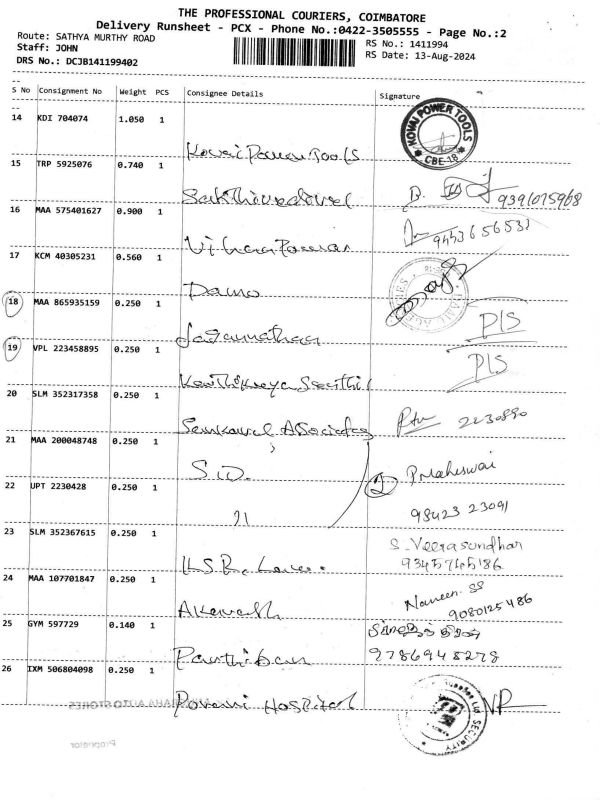 THE PROFESSIONAL COURIERS, COIMBATORE
Delivery Runsheet - PCX - Phone No.:0422-3505555 - Page No.:2
Route: SATHYA MURTHY ROAD RS No.: 1411994
Staff: JOHN RS Date: 13-Aug-2024
DRS No.: DCJB141199402
S No Consignment No Weight PCS Consignee Details Signature
14 KDI 704074 1.050 1
Kovai Power Tools KOVAI POWER TOOLS CBE-18
15 TRP 5925076 0.740 1
Sakthivadivel
16 MAA 575401627 0.900 1
17 KCM 40305231 0.560 1
18 MAA 865935159 0.250 1
Jagannathan P/S
19 VPL 223458895 0.250 1
P/S
20 SLM 352317358 0.250 1
Associates 2230890
21 MAA 200048748 0.250 1
S.D. P Maheswai
22 UPT 2230428 0.250 1
98423 23091
23 SLM 352367615 0.250 1
S. Veerasundhar
9345765186
24 MAA 107701847 0.250 1
Naveen. SS
9080125486
25 GYM 597729 0.140 1
Parthiban 9786948278
26 IXM 506804098 0.250 1
Hospital
SECURITY
Proprietor